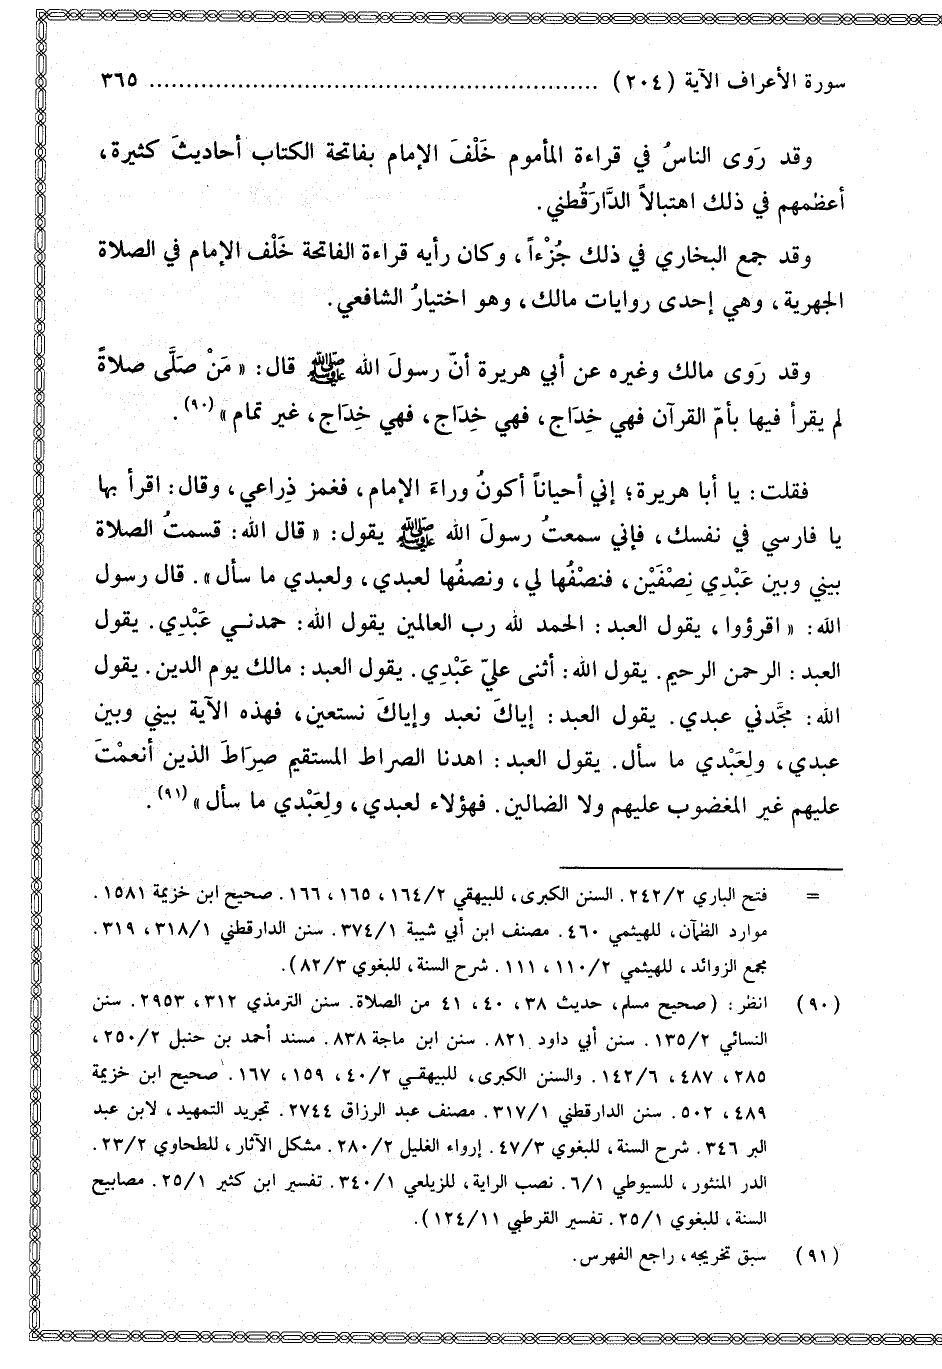 سورة الأعراف الآية (٢٠٤) ............................................................ ٣٦٥
وقد رَوى الناسُ في قراءة المأموم خَلْفَ الإمام بفاتحة الكتاب أحاديثَ كثيرة،
أعظمهم في ذلك اهتبالاً الدَّارَقُطني.
وقد جمع البخاري في ذلك جُزْءاً، وكان رأيه قراءة الفاتحة خَلْف الإمام في الصلاة
الجهرية، وهي إحدى روايات مالك، وهو اختيارُ الشافعي.
وقد رَوى مالك وغيره عن أبي هريرة أنّ رسولَ الله ﷺ قال: « مَنْ صَلَّى صلاةً
لم يقرأ فيها بأمّ القرآن فهي خِدَاج، فهي خِدَاج، فهي خِدَاج، غير تمام »(٩٠).
فقلت: يا أبا هريرة؛ إني أحياناً أكونُ وراءَ الإمام، فغمز ذِراعي، وقال: اقرأ بها
يا فارسي في نفسك، فإني سمعتُ رسولَ الله ﷺ يقول: « قال الله: قسمتُ الصلاة
بيني وبين عَبْدِي نِصْفَيْن، فنصْفُها لي، ونصفُها لعبدي، ولعبدي ما سأل». قال رسول
الله: « اقرؤوا، يقول العبد: الحمد لله رب العالمين يقول الله: حمدنـي عَبْدِي. يقول
العبد: الرحمن الرحيم. يقول الله: أثنى عليّ عَبْدِي. يقول العبد: مالك يوم الدين. يقول
الله: مجَّدني عبدي. يقول العبد: إياكَ نعبد وإياكَ نستعين، فهذه الآية بيني وبين
عبدي، ولِعَبْدي ما سأل. يقول العبد: اهدنا الصراط المستقيم صِرَاطَ الذين أنعمْتَ
عليهم غير المغضوب عليهم ولا الضالين. فهؤلاء لعبدي، ولِعَبْدي ما سأل»(٩١).
= فتح الباري ٢٤٢/٢. السنن الكبرى، للبيهقي ١٦٤/٢، ١٦٥، ١٦٦. صحيح ابن خزيمة ١٥٨١.
موارد الظمآن، للهيثمي ٤٦٠. مصنف ابن أبي شيبة ٣٧٤/١. سنن الدارقطني ٣١٨/١، ٣١٩.
مجمع الزوائد، للهيثمي ١١٠/٢، ١١١. شرح السنة، للبغوي ٨٢/٣).
(٩٠) انظر: (صحيح مسلم، حديث ٣٨، ٤٠، ٤١ من الصلاة. سنن الترمذي ٣١٢، ٢٩٥٣. سنن
النسائي ١٣٥/٢. سنن أبي داود ٨٢١. سنن ابن ماجة ٨٣٨. مسند أحمد بن حنبل ٢٥٠/٢،
٢٨٥، ٤٨٧، ١٤٢/٦. والسنن الكبرى، للبيهقـي ٤٠/٢، ١٥٩، ١٦٧. صحيح ابن خزيمة
٤٨٩، ٥٠٢. سنن الدارقطني ٣١٧/١. مصنف عبد الرزاق ٢٧٤٤. تجريد التمهيد، لابن عبد
البر ٣٤٦. شرح السنة، للبغوي ٤٧/٣. إرواء الغليل ٢٨٠/٢. مشكل الآثار، للطحاوي ٢٣/٢.
الدر المنثور، للسيوطي ٦/١. نصب الراية، للزيلعي ٣٤٠/١. تفسير ابن كثير ٢٥/١. مصابيح
السنة، للبغوي ٢٥/١. تفسير القرطبي ١٢٤/١١).
(٩١) سبق تخريجه، راجع الفهرس.